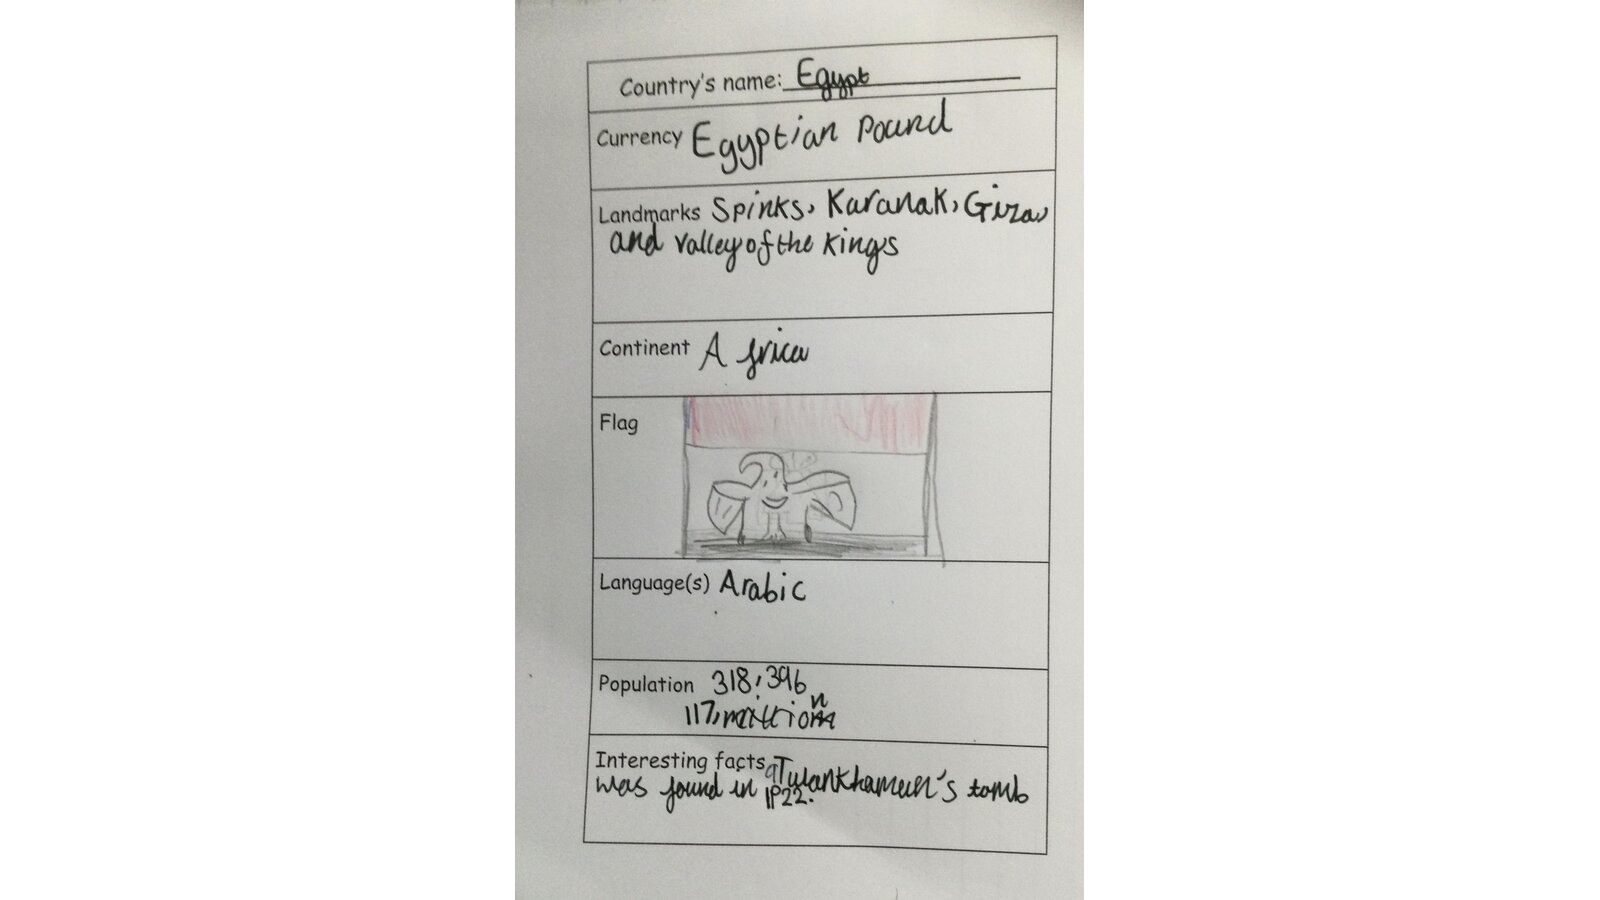 Country's name: Egypt
Currency Egyptian Pound
Landmarks Spinks, Karanak, Giza,
and valley of the Kings
Continent Africa
Flag
Language(s) Arabic
Population 318,396
117,million
Interesting facts Tutankhamun's tomb
was found in 1922.